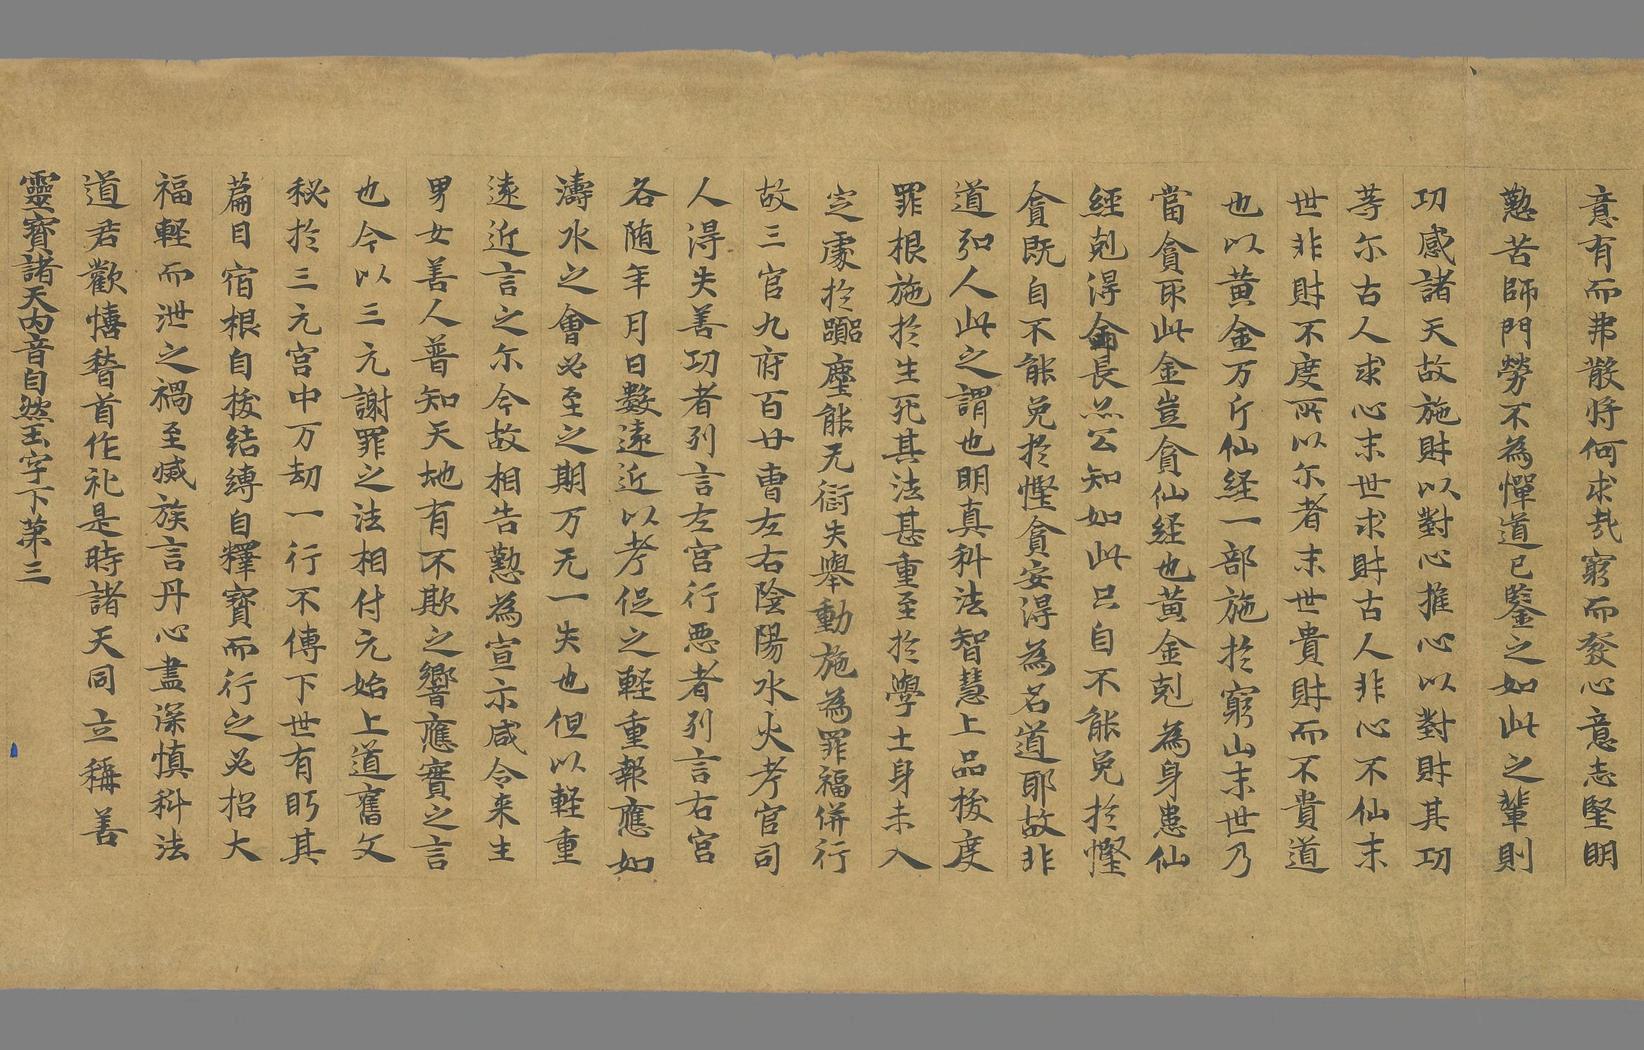 意有而弗散将何求㢤窮而發心意志堅明
懃苦師門勞不為憚道已鑒之如此之輩則
功感諸天故施財以對心推心以對財其功
等尓古人求心末世求財古人非心不仙末
世非財不度所以尓者末世貴財而不貴道
也以黄金万斤仙経一部施於窮山末世乃
當貪取此金豈貪仙経也黄金剋為身患仙
經剋得長㳂公知如此只自不能免於慳
貪既自不能免於慳貪安得為名道耶故非
道弘人此之謂也明真科法智慧上品拔度
罪根施於生死其法甚重至於學士身未入
㝎處於囂塵能无愆失舉動施為罪福併行
故三官九府百廿曹左右陰陽水火考官司
人得失善功者列言左宮行悪者列言右宮
各随年月日數遠近以考促之軽重報應如
濤水之會必至之期万无一失也但以軽重
遠近言之尓今故相告懃為宣示咸令来生
男女善人普知天地有不欺之響應實之言
也今以三元謝罪之法相付元始上道舊文
秘於三元宮中万劫一行不傳下世有眄其
篇目宿根自拔結縛自釋寳而行之必招大
福軽而泄之禍至滅族言丹心盡深慎科法
道君歡憘稽首作礼是時諸天同立稱善
靈寳諸天内音自然玉字下苐三